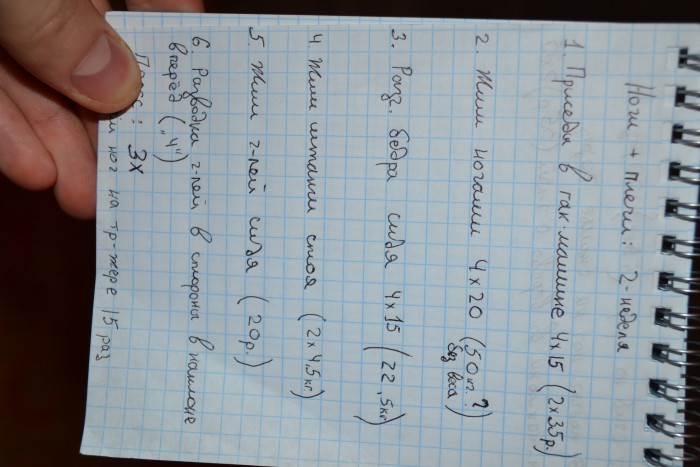 Ноги + плечи: 2-неделя
1. Приседы в гак.машине 4х15 (2х35р.)
2. Жим ногами 4х20 (50кг.?
без веса)
3. Разг. бедра сидя 4х15 (22,5кг)
4 Жим штанги стоя (2х4,5кг)
5. Жим г-лей сидя (20р.)
6. Разводка г-лей в стороны в наклоне
вперёд („4")
3х
ног на тр-жере 15 раз